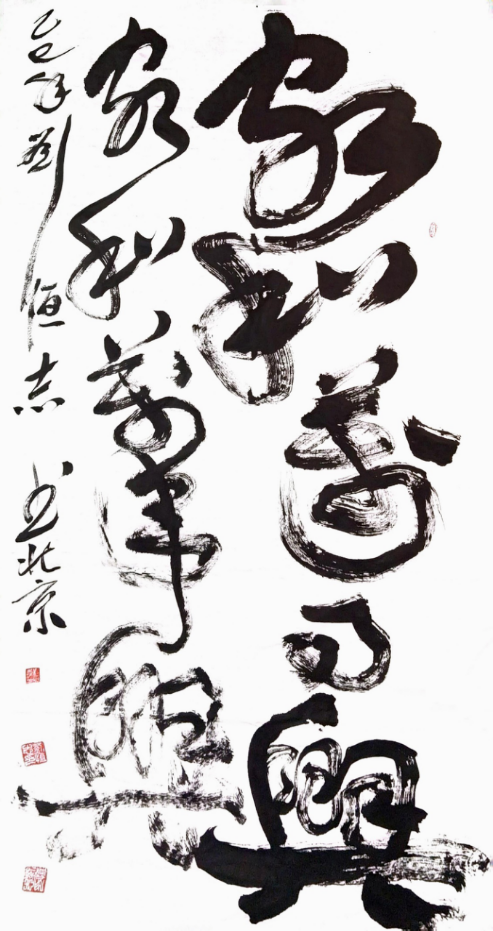 家和萬事興
家和萬事興
乙巳年 劉恒志 书北京